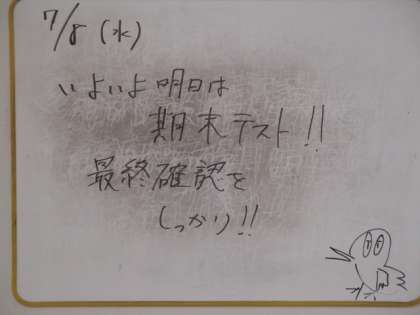 7/8(水)
いよいよ明日は
期末テスト!!
最終確認を
しっかり!!